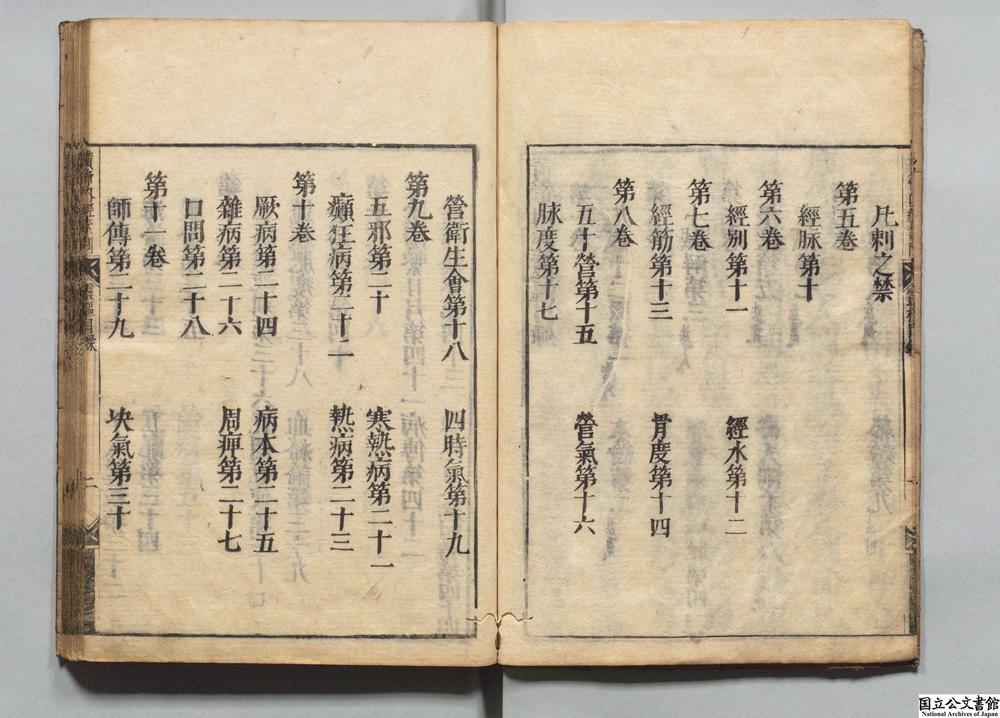 凡刺之禁
第五卷
經脉第十
第六卷
經別第十一 經水第十二
第七卷
經筋第十三 骨度第十四
第八卷
五十營第十五 營氣第十六
脉度第十七
營衛生會第十八 四時氣第十九
第九卷
五邪第二十 寒熱病第二十一
癲狂病第二十二 熱病第二十三
第十卷
厥病第二十四 病本第二十五
雜病第二十六 周痹第二十七
口問第二十八
第十一卷
師傳第二十九 決氣第三十
国立公文書館
National Archives of Japan